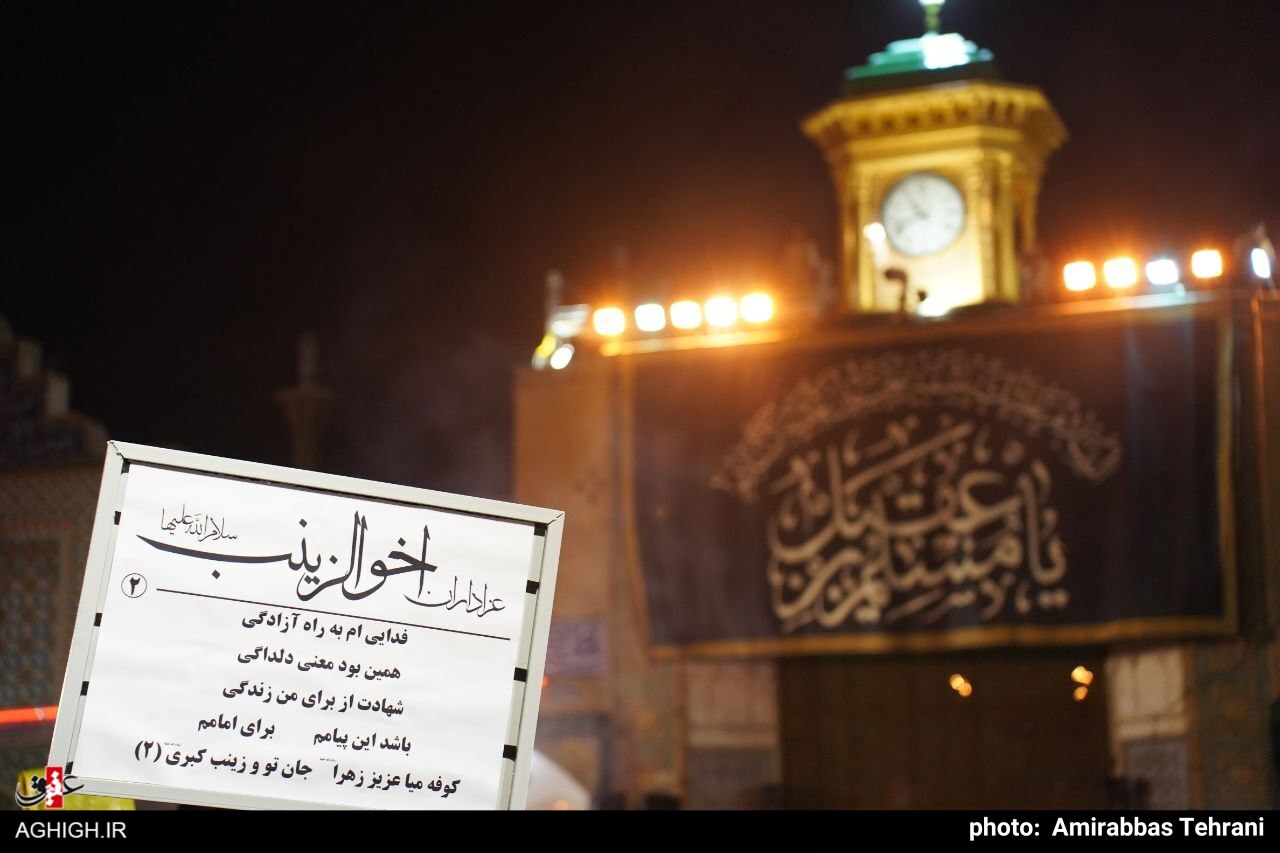 یا مسلم بن عقیل
سلام الله علیها
عزاداران اخوالزینب
۲
فدایی ام به راه آزادگی
همین بود معنی دلداگی
شهادت از برای من زندگی
باشد این پیامم برای امامم
کوفه میا عزیز زهرا جان تو و زینب کبری (۲)
عقیق
AGHIGH.IR
photo: Amirabbas Tehrani